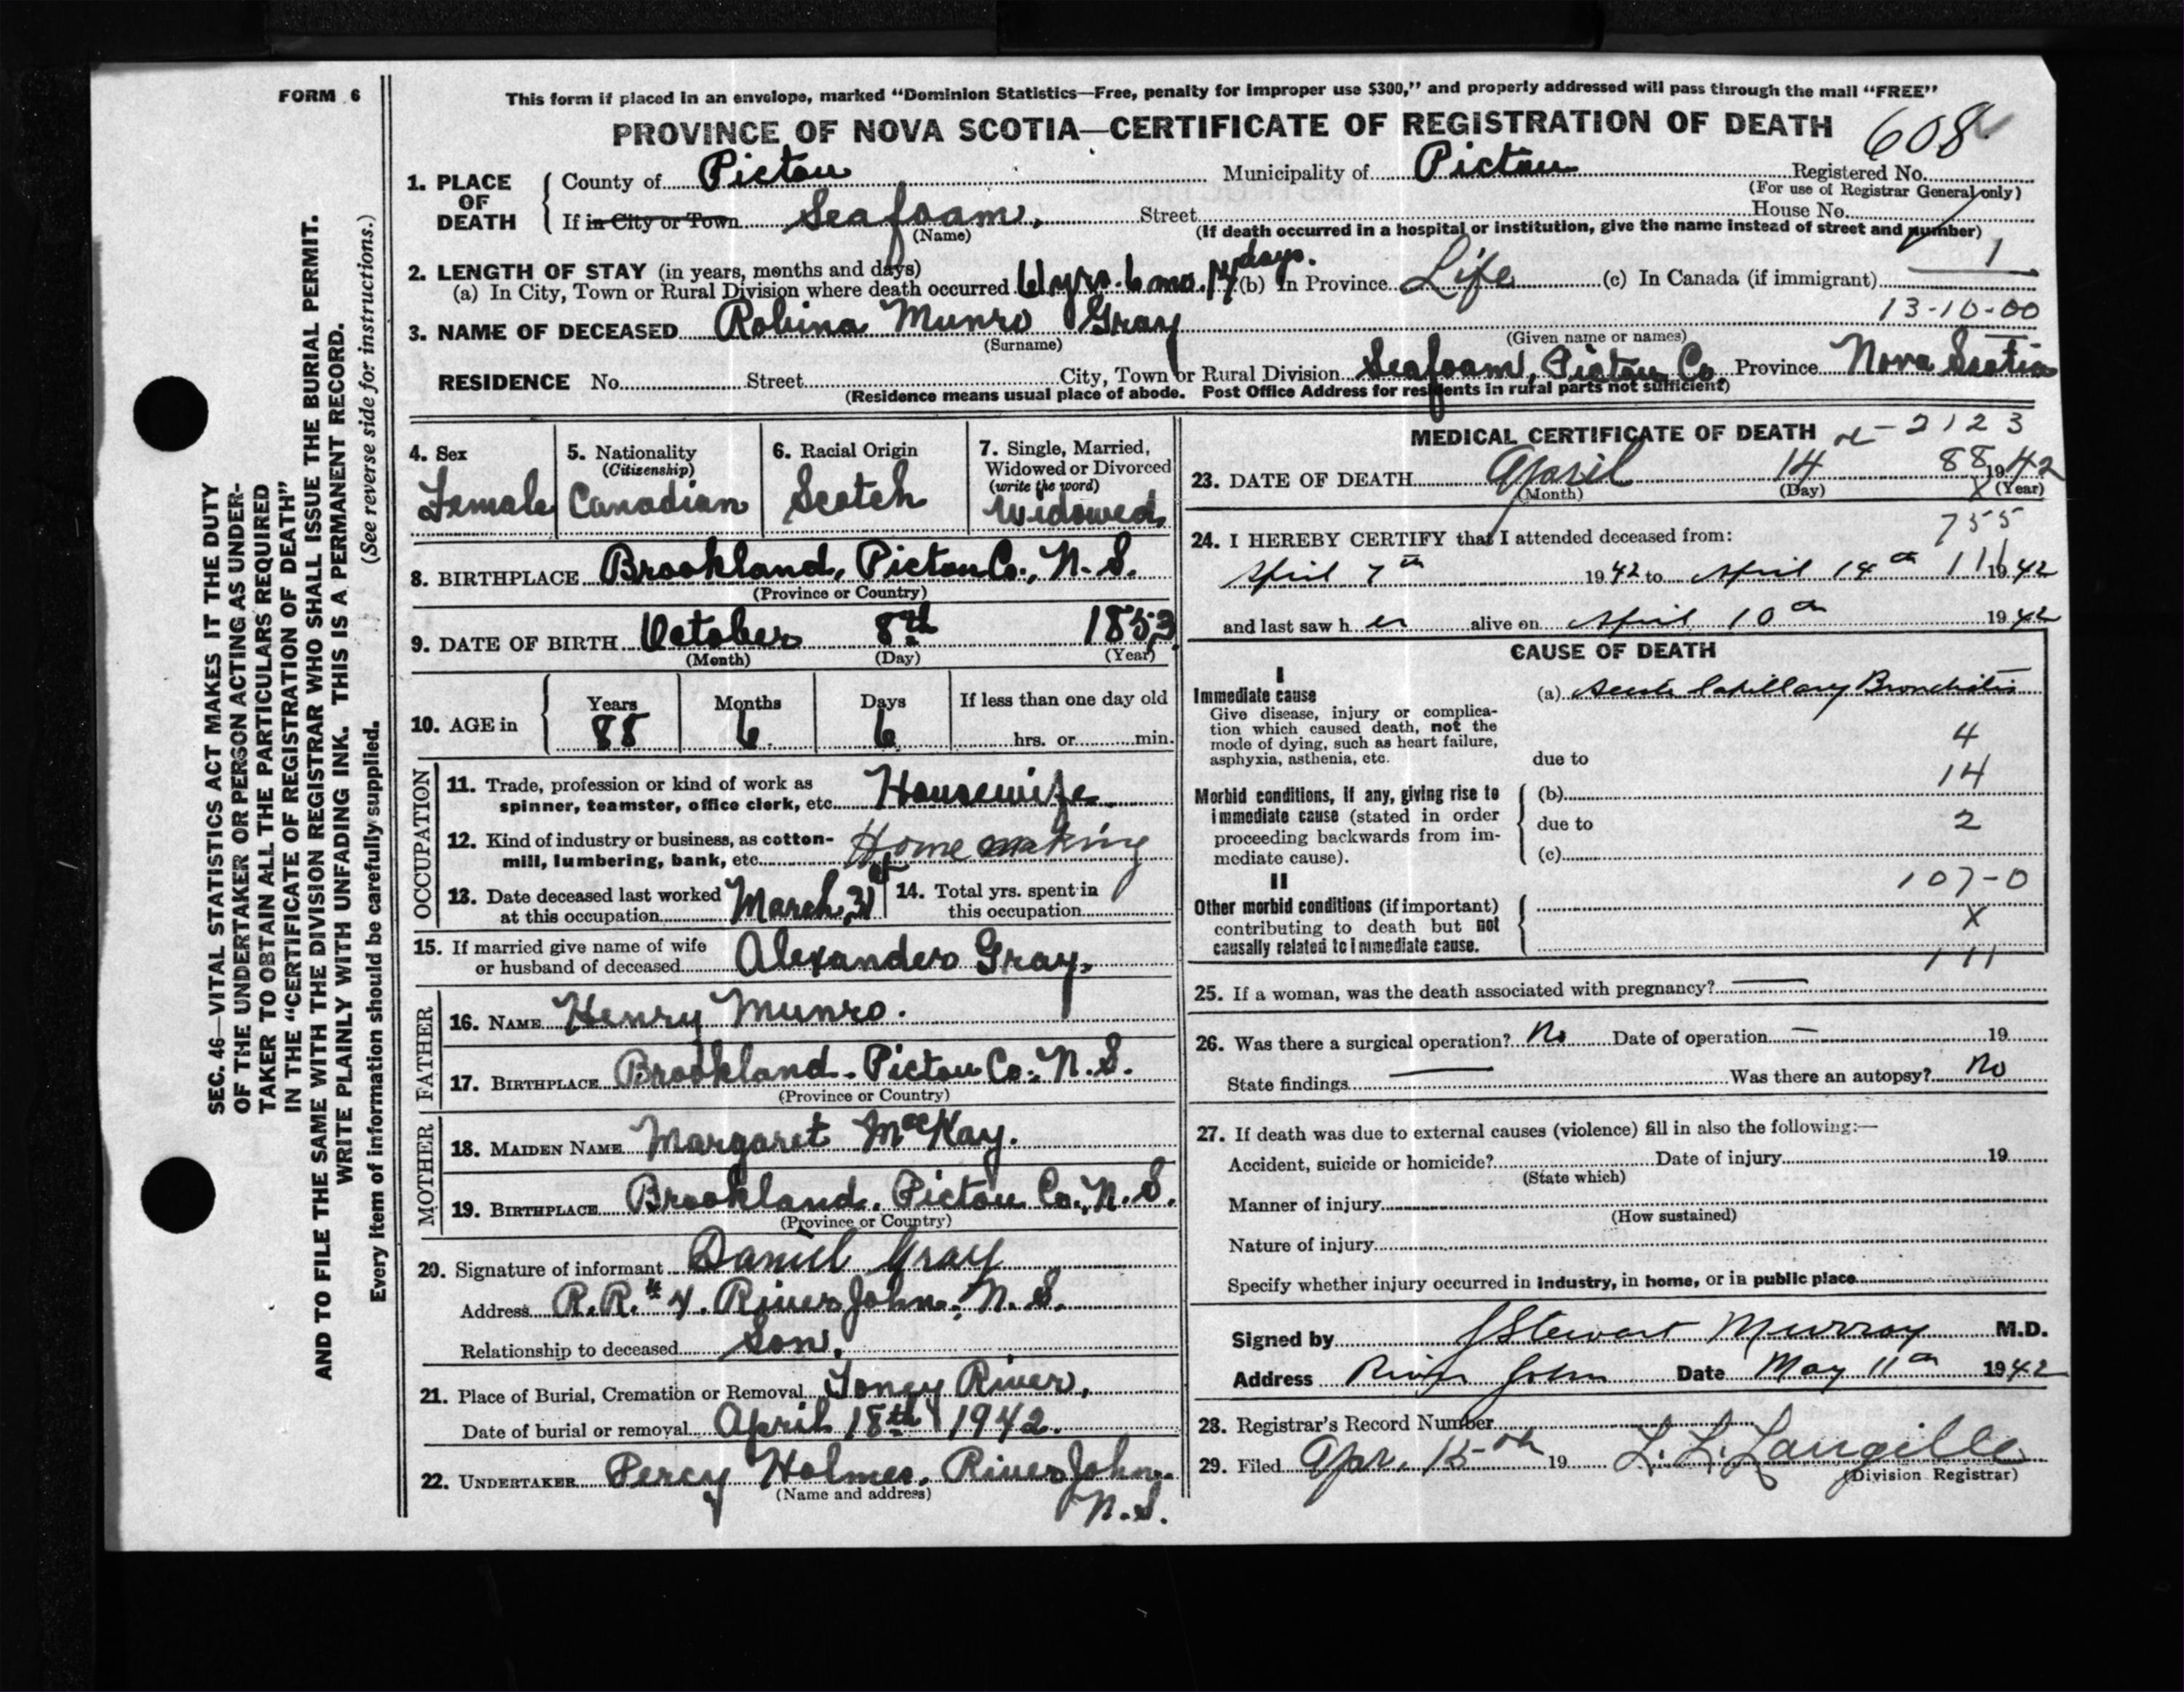 FORM 6
This form if placed in an envelope, marked “Dominion Statistics—Free, penalty for improper use $300,” and properly addressed will pass through the mail “FREE”
PROVINCE OF NOVA SCOTIA—CERTIFICATE OF REGISTRATION OF DEATH 608
1. PLACE OF DEATH
County of Pictou Municipality of Pictou Registered No.
(For use of Registrar General only)
If in City or Town Seafoam, Street House No.
(Name) (If death occurred in a hospital or institution, give the name instead of street and number)
2. LENGTH OF STAY (in years, months and days)
(a) In City, Town or Rural Division where death occurred yrs. 6 mo. days. (b) In Province Life (c) In Canada (if immigrant)
1
13-10-00
3. NAME OF DECEASED Robina Munro Gray
(Surname) (Given name or names)
RESIDENCE No. Street City, Town or Rural Division Seafoam, Pictou Co Province Nova Scotia
(Residence means usual place of abode. Post Office Address for residents in rural parts not sufficient)
4. Sex
Female
5. Nationality
(Citizenship)
Canadian
6. Racial Origin
Scotch
7. Single, Married,
Widowed or Divorced
(write the word)
Widowed
8. BIRTHPLACE Brookland, Pictou Co., N.S.
(Province or Country)
9. DATE OF BIRTH October 8th 1853
(Month) (Day) (Year)
10. AGE in
Years Months Days If less than one day old
88 6 6 hrs. or min.
OCCUPATION
11. Trade, profession or kind of work as
spinner, teamster, office clerk, etc. Housewife
12. Kind of industry or business, as cotton-
mill, lumbering, bank, etc. Home making
13. Date deceased last worked
at this occupation March, 31st
14. Total yrs. spent in
this occupation
15. If married give name of wife
or husband of deceased Alexander Gray,
FATHER
16. NAME Henry Munro.
17. BIRTHPLACE Brookland. Pictou Co. N.S.
(Province or Country)
MOTHER
18. MAIDEN NAME Margaret MacKay.
19. BIRTHPLACE Brookland, Pictou Co., N.S.
(Province or Country)
20. Signature of informant Daniel Gray
Address R.R.# 4. River John, N.S.
Relationship to deceased Son.
21. Place of Burial, Cremation or Removal Toney River,
Date of burial or removal April 18th 1942.
22. UNDERTAKER Percy Holmes, River John.
(Name and address) N.S.
MEDICAL CERTIFICATE OF DEATH 2123
23. DATE OF DEATH April 14 1942
(Month) (Day) (Year)
88
X
755
24. I HEREBY CERTIFY that I attended deceased from:
April 7th 1942 to April 14th 1942
111
and last saw her alive on April 10th 1942
CAUSE OF DEATH
I
Immediate cause
Give disease, injury or complica-
tion which caused death, not the
mode of dying, such as heart failure,
asphyxia, asthenia, etc.
(a) Acute Capillary Bronchitis
4
due to
14
Morbid conditions, if any, giving rise to
immediate cause (stated in order
proceeding backwards from im-
mediate cause).
(b)
due to
2
(c)
107-0
II
Other morbid conditions (if important)
contributing to death but not
causally related to immediate cause.
X
111
25. If a woman, was the death associated with pregnancy? —
26. Was there a surgical operation? No Date of operation — 19
State findings — Was there an autopsy? No
27. If death was due to external causes (violence) fill in also the following:—
Accident, suicide or homicide? Date of injury 19
(State which)
Manner of injury
(How sustained)
Nature of injury
Specify whether injury occurred in industry, in home, or in public place
Signed by J Stewart Murray M.D.
Address River John Date May 11th 1942
28. Registrar's Record Number
29. Filed Apr. 15th 19 L. L. Langille
(Division Registrar)
SEC. 46—VITAL STATISTICS ACT MAKES IT THE DUTY
OF THE UNDERTAKER OR PERSON ACTING AS UNDER-
TAKER TO OBTAIN ALL THE PARTICULARS REQUIRED
IN THE “CERTIFICATE OF REGISTRATION OF DEATH”
AND TO FILE THE SAME WITH THE DIVISION REGISTRAR WHO SHALL ISSUE THE BURIAL PERMIT.
WRITE PLAINLY WITH UNFADING INK. THIS IS A PERMANENT RECORD.
(See reverse side for instructions.)
Every item of information should be carefully supplied.